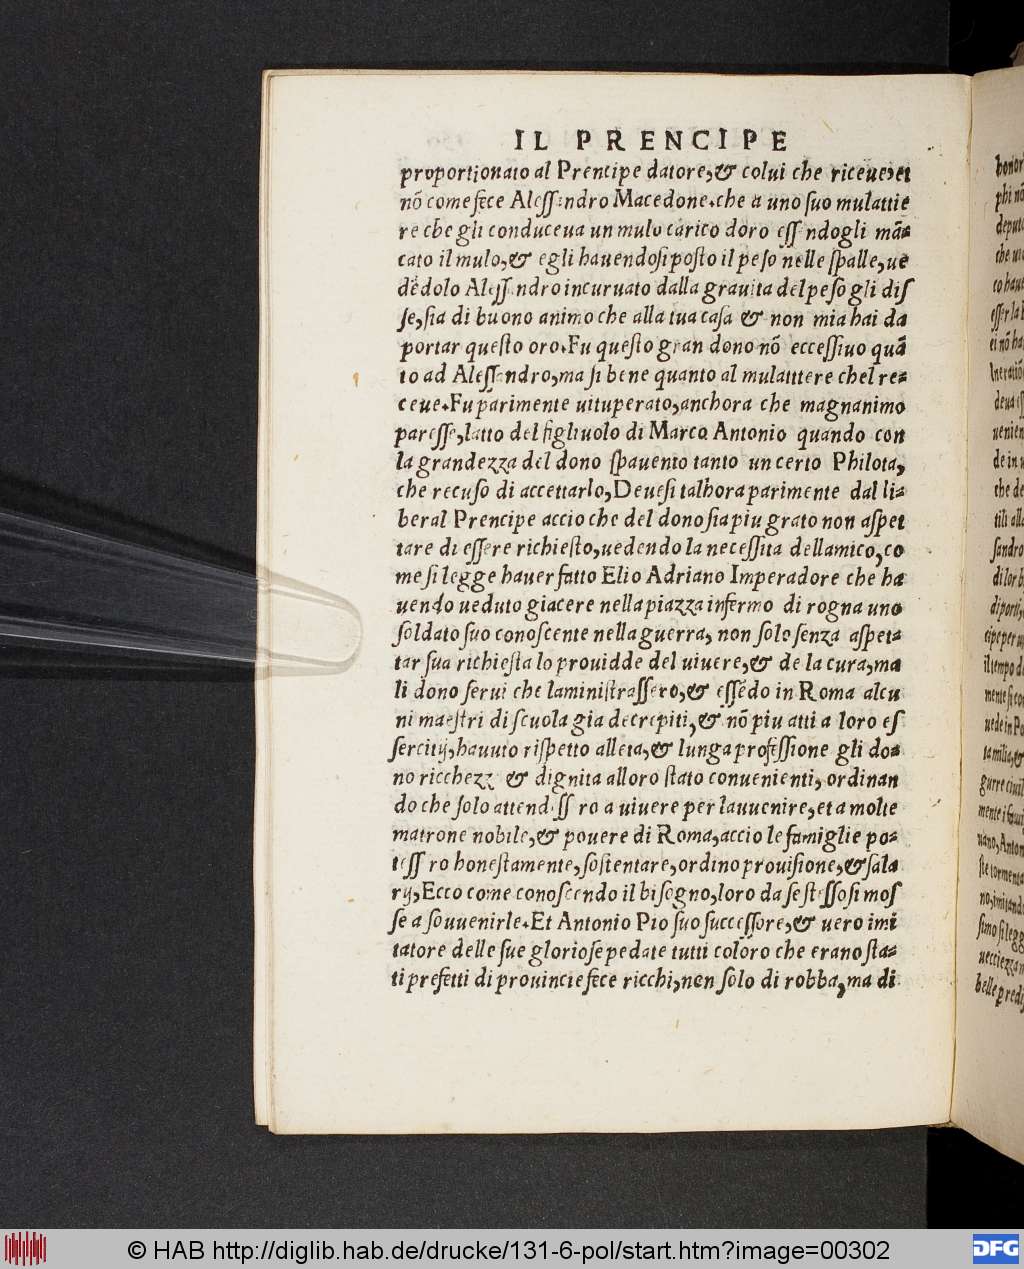 IL PRENCIPE
proportionato al Prencipe datore,& colui che riceue,et
nõ come fece Aless ndro Macedone.che a uno suo mulattie
re che gli conduceua un mulo carico doro ess ndogli mã=
cato il mulo,& egli hauendosi posto il peso nelle spalle,ue
dẽdolo Aless ndro incuruato dalla grauita del peso gli dis
se,sia di buono animo che alla tua casa & non mia hai da
portar questo oro.Fu questo gran dono nõ eccessiuo quã
to ad Aless ndro,ma si bene quanto al mulatttere chel re=
ceue.Fu parimente uituperato,anchora che magnanimo
paresse,latto del figliuolo di Marco Antonio quando con
la grandezza del dono spauento tanto un certo Philota,
che recuso di accettarlo,Deuesi talhora parimente dal li=
beral Prencipe accio che del dono sia piu grato non aspet
tare di essere richiesto,uedendo la necessita dellamico,co
me si legge hauer fatto Elio Adriano Imperadore che ha
uendo ueduto giacere nella piazza infermo di rogna uno
soldato suo conoscente nella guerra, non solo senza aspet=
tar sua richiesta lo prouidde del uiuere,& de la cura,ma
li dono serui che laministrassero,& essẽdo in Roma alcu
ni maestri di scuola gia decrepiti,& nõ piu atti a loro es
sercitij,hauuto rispetto alleta,& lunga professione gli do=
no ricchezz & dignita alloro stato conuenienti, ordinan
do che solo attend ss ro a uiuere per lauuenire,et a molte
matrone nobile,& pouere di Roma,accio le famiglie po=
tess ro honestamente,sostentare,ordino prouisione,& sala
rij,Ecco come conoscendo il bisogno,loro da se stesso si mos
se a souuenirle.Et Antonio Pio suo successore,& uero imi
tatore delle sue gloriose pedate tutti coloro che erano sta=
ti prefetti di prouincie fece ricchi,non solo di robba,ma di
© HAB http://diglib.hab.de/drucke/131-6-pol/start.htm?image=00302
DFG